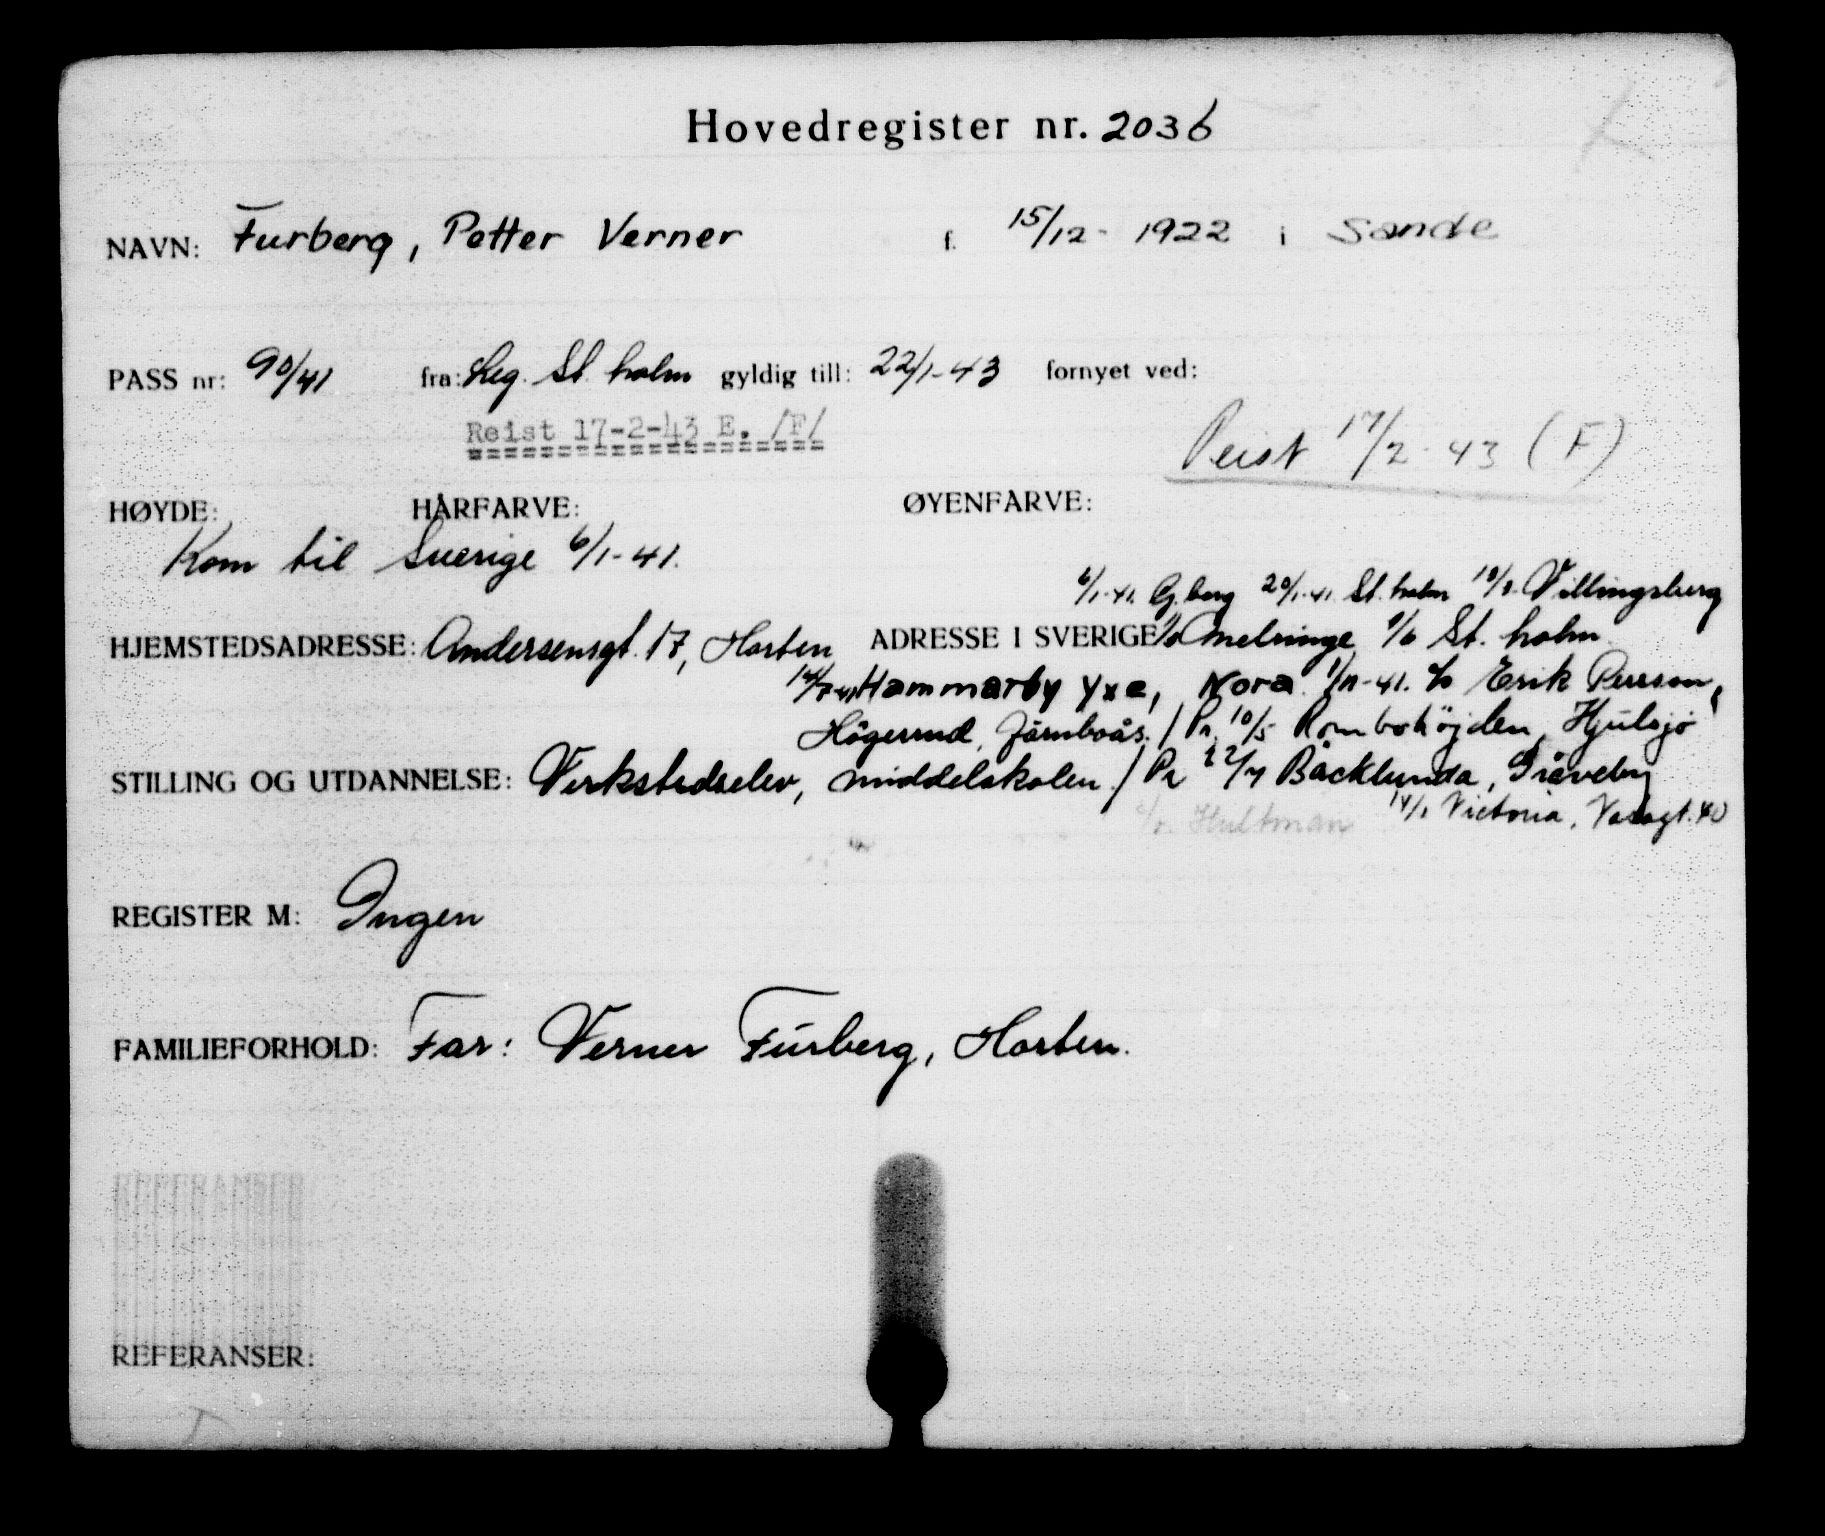 Hovedregister nr. 2036
NAVN: Furberg, Petter Verner f. 15/12- 1922 i Sande
PASS nr: 90/41 fra: Leg. St. holm gyldig till: 22/1-43 fornyet ved:
Reist 17-2-43 E. /F/
Reist 17/2-43 (F)
HØYDE: HÅRFARVE: ØYENFARVE:
Kom til Sverige 6/1-41.
6/1-41. Gj.berg 20/1-41. St. holm Villingsberg
HJEMSTEDSADRESSE: Andersensgt. 17, Horten ADRESSE I SVERIGE: Melninge St. holm.
Hammarby Yxe, Nora. 1/11-41. c/o Erik Persson,
Högerud, Järnboås. / Pr. 10/5 Rombohöjden, Hjulsjö
STILLING OG UTDANNELSE: Verkstedselev, middelskolen. / Pr 22/7 Bäcklunda, Gräveby
c/o. Hultman 14/1 Victoria, Vasagt. 40
REGISTER M: Ingen
FAMILIEFORHOLD: Far: Verner Furberg, Horten.
REFERANSER: